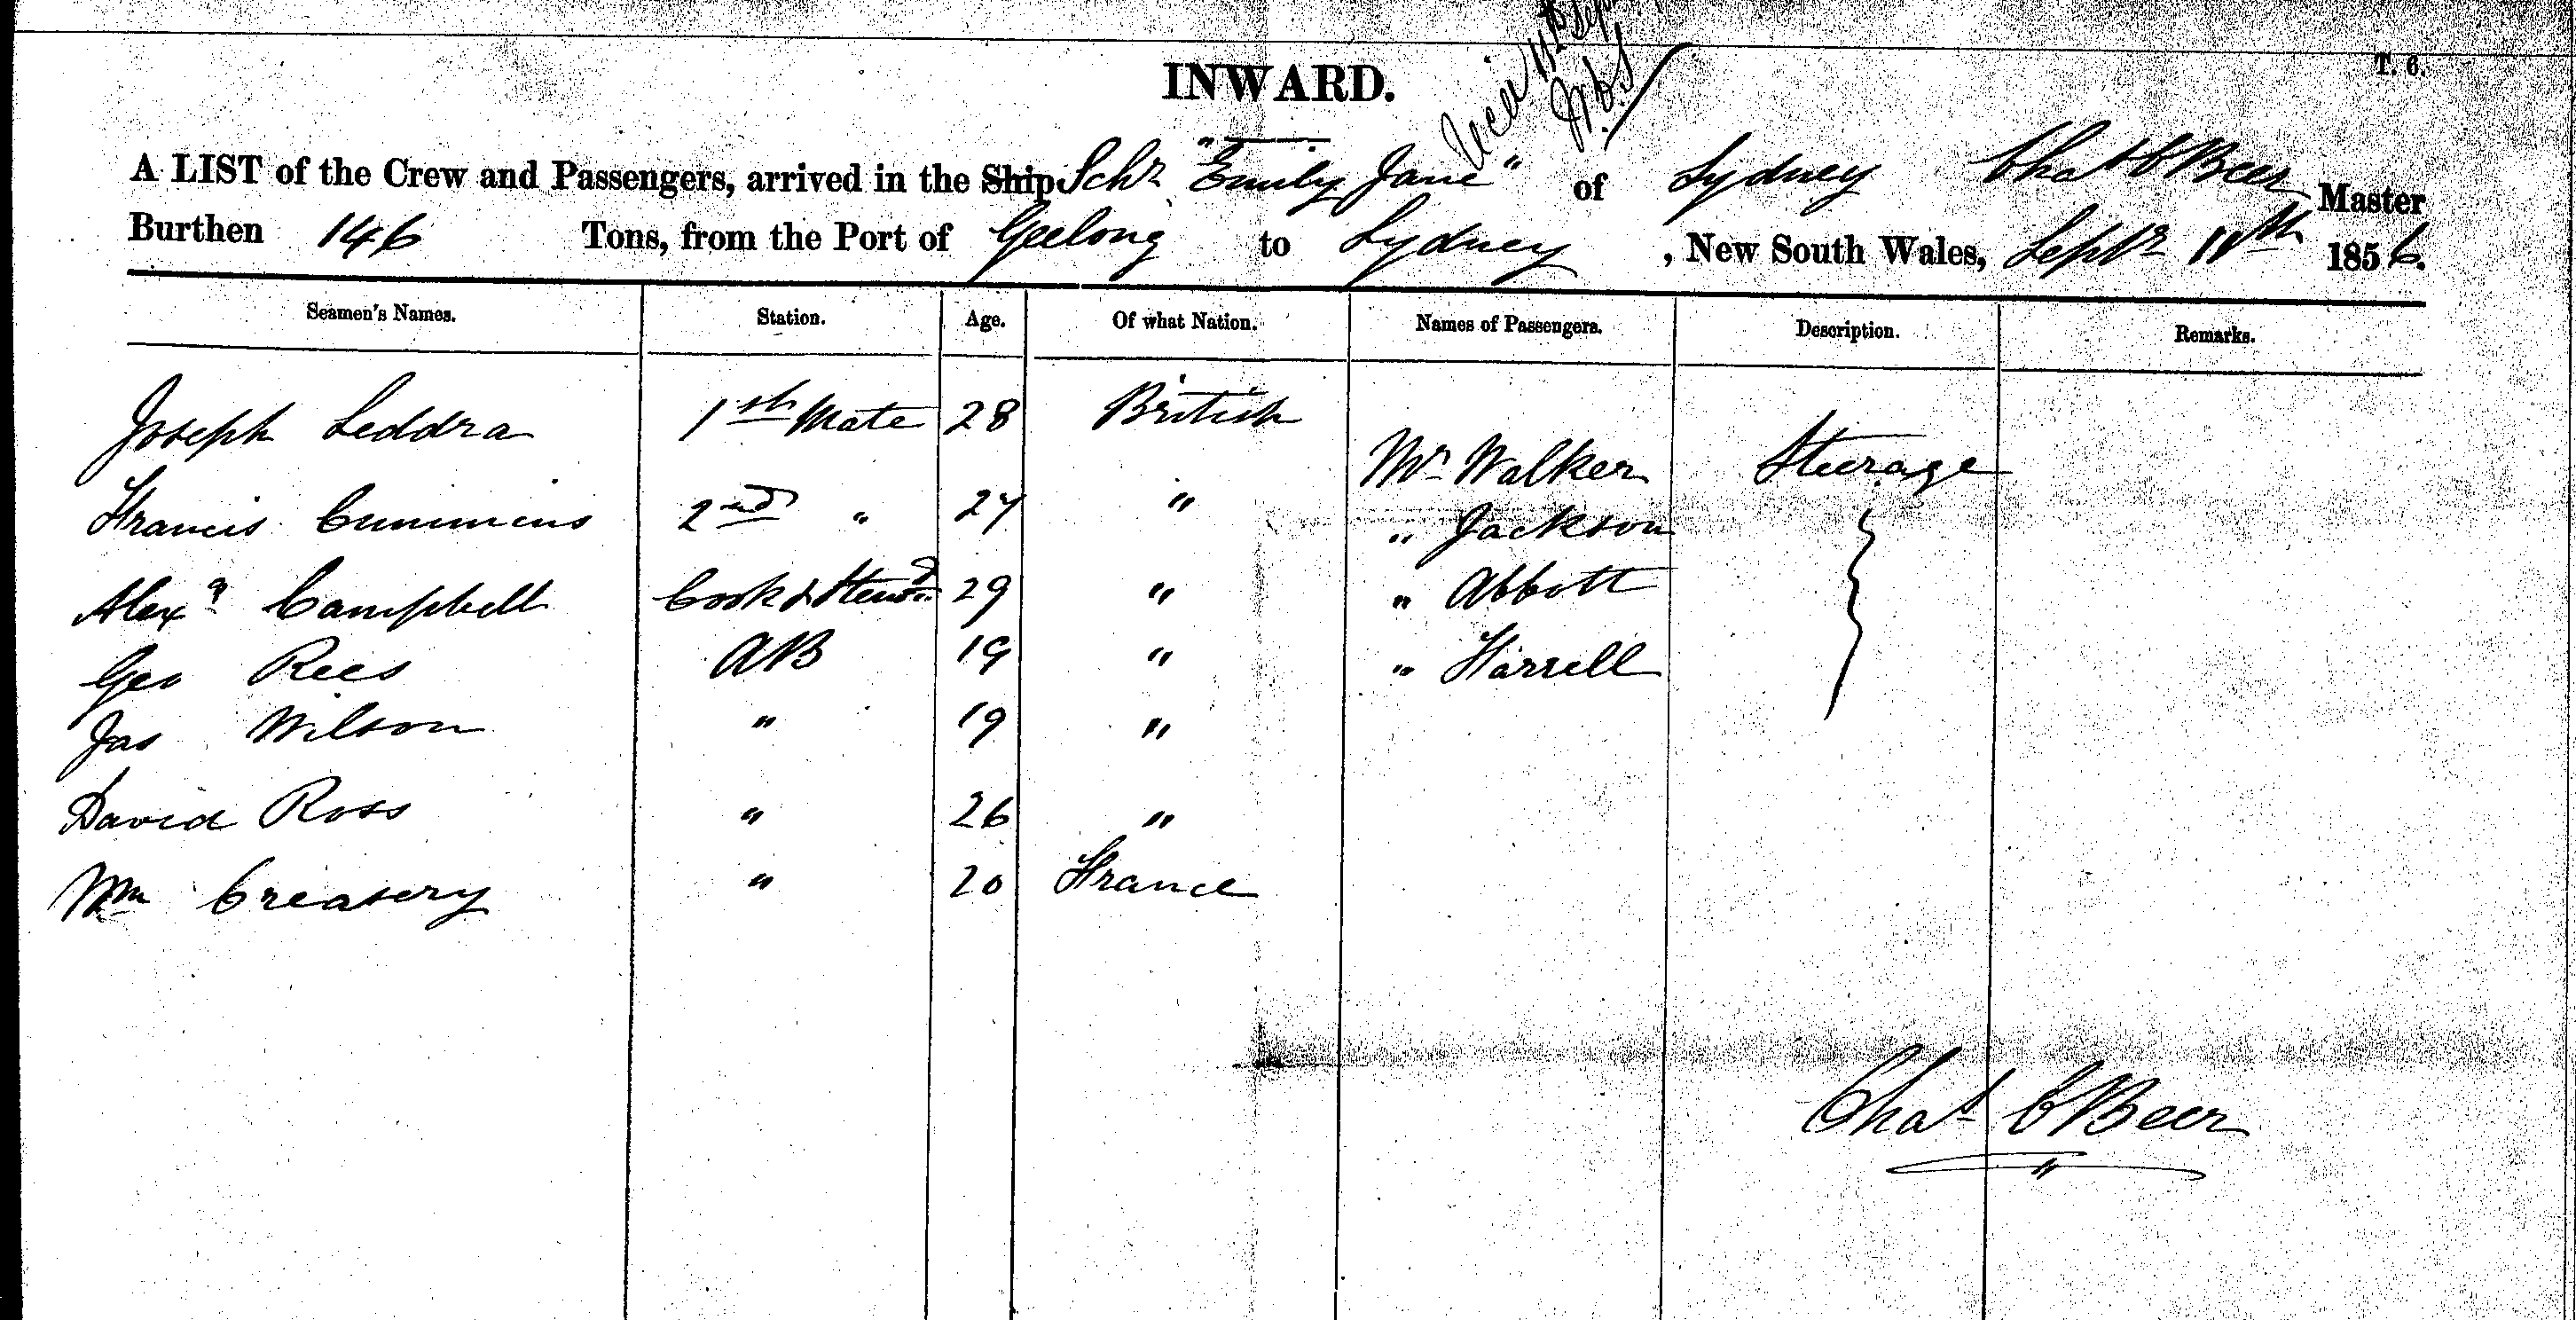 INWARD.
T. 6.
A LIST of the Crew and Passengers, arrived in the Ship Schr "Emily Jane" of Sydney Chas C Beer Master
Burthen 146 Tons, from the Port of Geelong to Sydney, New South Wales, Septr 11th 1856.
Seamen's Names. Station. Age. Of what Nation. Names of Passengers. Description. Remarks.
Joseph Leddra 1st Mate 28 British
Mr Walker Steerage
Francis Cummins 2nd " 27 "
" Jackson
Alexr Campbell Cook & Stewd 29 " " Abbott
Geo Rees AB 19 " " Harrell
Jas Wilson " 19 "
David Ross " 26 "
Wm Creasery " 20 France
Chas C Beer